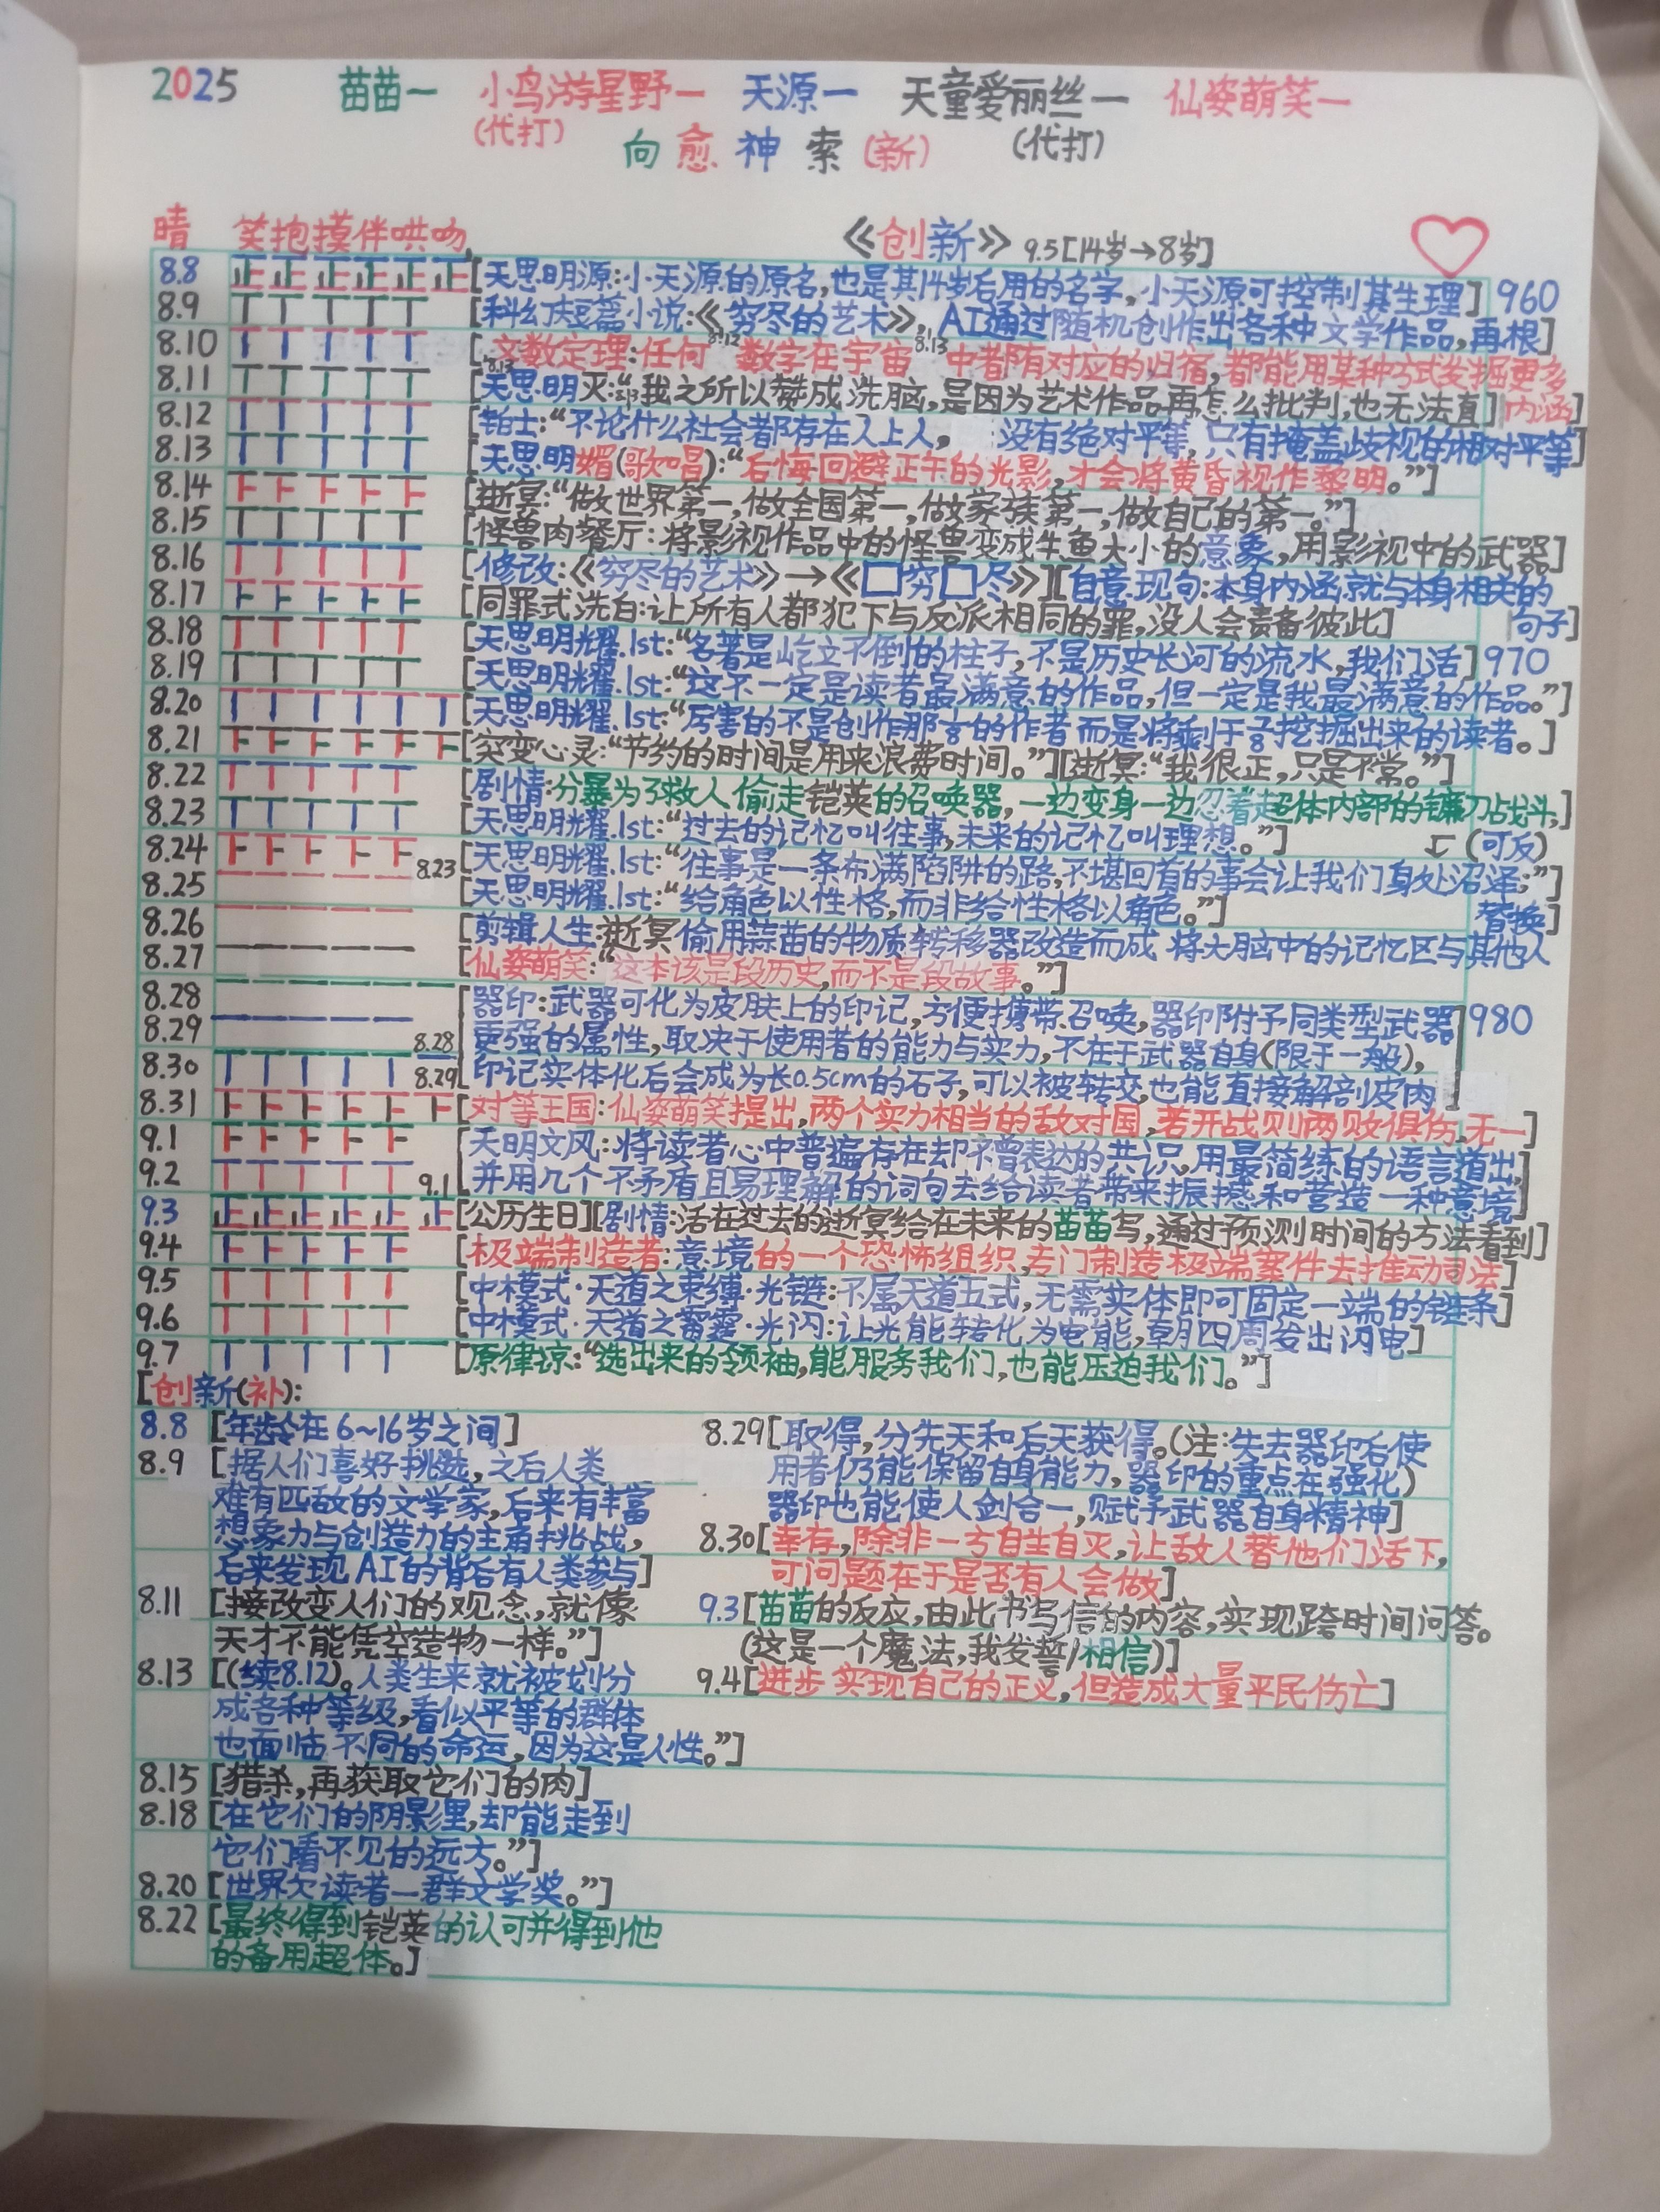 2025 苗苗一 小鸟游星野一 天源一 天童爱丽丝一 仙姿萌笑一
(代打) (代打)
向愈神索(新)
晴 笑抱摸伴哄吻 《创新》 9.5[14岁→8岁]
8.8 正正正正正正 [天思明源:小天源的原名,也是其14岁后用的名字,小天源可控制其生理] 960
8.9 [科幻短篇小说:《穷尽的艺术》,AI通过随机创作出各种文学作品,再根]
8.12 8.13
8.10 [文数定理:任何 数字在宇宙 中都有对应的归宿,都能用某种方式发掘更多
内涵]
8.13
8.11 [天思明灭:“我之所以赞成洗脑,是因为艺术作品再怎么批判,也无法直]
8.12 [铂士:“不论什么社会都存在人上人, 没有绝对平等,只有掩盖歧视的相对平等]
8.13 [天思明媚(歌唱):“后悔回避正午的光影,才会将黄昏视作黎明。”]
8.14 [逝冥:“做世界第一,做全国第一,做家族第一,做自己的第一。”]
8.15 [怪兽肉餐厅:将影视作品中的怪兽变成牛鱼大小的意象,用影视中的武器]
8.16 [修改:《穷尽的艺术》→《□穷□尽》][自意现句:本身内涵就与本身相关的
句子]
8.17 [同罪式洗白:让所有人都犯下与反派相同的罪,没人会责备彼此]
8.18 [天思明耀.1st:“名著是屹立不倒的柱子,不是历史长河的流水,我们活] 970
8.19 [天思明耀.1st:“这不一定是读者最满意的作品,但一定是我最满意的作品。”]
8.20 [天思明耀.1st:“厉害的不是创作那⅓的作者而是将剩于⅔挖掘出来的读者。]
8.21 [突变心灵:“节约的时间是用来浪费时间。”][逝冥:“我很正,只是不常。”]
8.22 [剧情:分暴为了救人偷走铠荚的召唤器,一边变身一边忍着超体内部的镰刀战斗,]
8.23 [天思明耀.1st:“过去的记忆叫往事,未来的记忆叫理想。”] (可反)
8.24 8.23 [天思明耀.1st:“往事是一条布满陷阱的路,不堪回首的事会让我们身处沼泽;”]
8.25 [天思明耀.1st:“给角色以性格,而非给性格以角色。”] 替换]
8.26 [剪辑人生:逝冥偷用蒜苗的物质转移器改造而成 将大脑中的记忆区与其他人
8.27 [仙姿萌笑:“这本该是段历史,而不是段故事。”]
8.28 [器印:武器可化为皮肤上的印记,方便携带召唤,器印附予同类型武器 980
8.29 8.28 更强的属性,取决于使用者的能力与实力,不在于武器自身(限于一般),
8.30 8.29 印记实体化后会成为长0.5cm的石子,可以被转交,也能直接解剖皮肉]
8.31 [对等王国:仙姿萌笑提出,两个实力相当的敌对国,若开战则两败俱伤,无一]
9.1 [天明文风:将读者心中普遍存在却不曾表达的共识,用最简练的语言道出,
9.2 9.1 并用几个不矛盾且易理解的词句去给读者带来振撼和营造一种意境]
9.3 正正正正正正 [公历生日][剧情:活在过去的逝冥给在未来的苗苗写,通过预测时间的方法看到]
9.4 [极端制造者:意境的一个恐怖组织,专门制造极端案件去推动司法]
9.5 [中模式·天道之束缚·光链:不属天道五式,无需实体即可固定一端的链条]
9.6 [中模式·天道之雷霆·光闪:让光能转化为电能,朝四周发出闪电]
9.7 [原律谅:“选出来的领袖,能服务我们,也能压迫我们。”]
[创新(补):
8.8 [年龄在6~16岁之间]
8.9 [据人们喜好挑选,之后人类
难有匹敌的文学家,后来有丰富
想象力与创造力的主角挑战,
后来发现AI的背后有人类参与]
8.11 [接改变人们的观念,就像
天才不能凭空造物一样。”]
8.13 [(续8.12)。人类生来就被划分
成各种等级,看似平等的群体
也面临不同的命运,因为这是人性。”]
8.15 [猎杀,再获取它们的肉]
8.18 [在它们的阴影里,却能走到
它们看不见的远方。”]
8.20 [世界欠读者一群文学奖。”]
8.22 [最终得到铠荚的认可并得到他
的备用超体。]
8.29 [取得,分先天和后天获得。(注:失去器印后使
用者仍能保留自身能力,器印的重点在强化)
器印也能使人剑合一,赋予武器自身精神]
8.30 [幸存,除非一方自生自灭,让敌人替他们活下,
可问题在于是否有人会做]
9.3 [苗苗的反应,由此书写信的内容,实现跨时间问答。
(这是一个魔法,我发誓/相信)]
9.4 [进步 实现自己的正义,但造成大量平民伤亡]